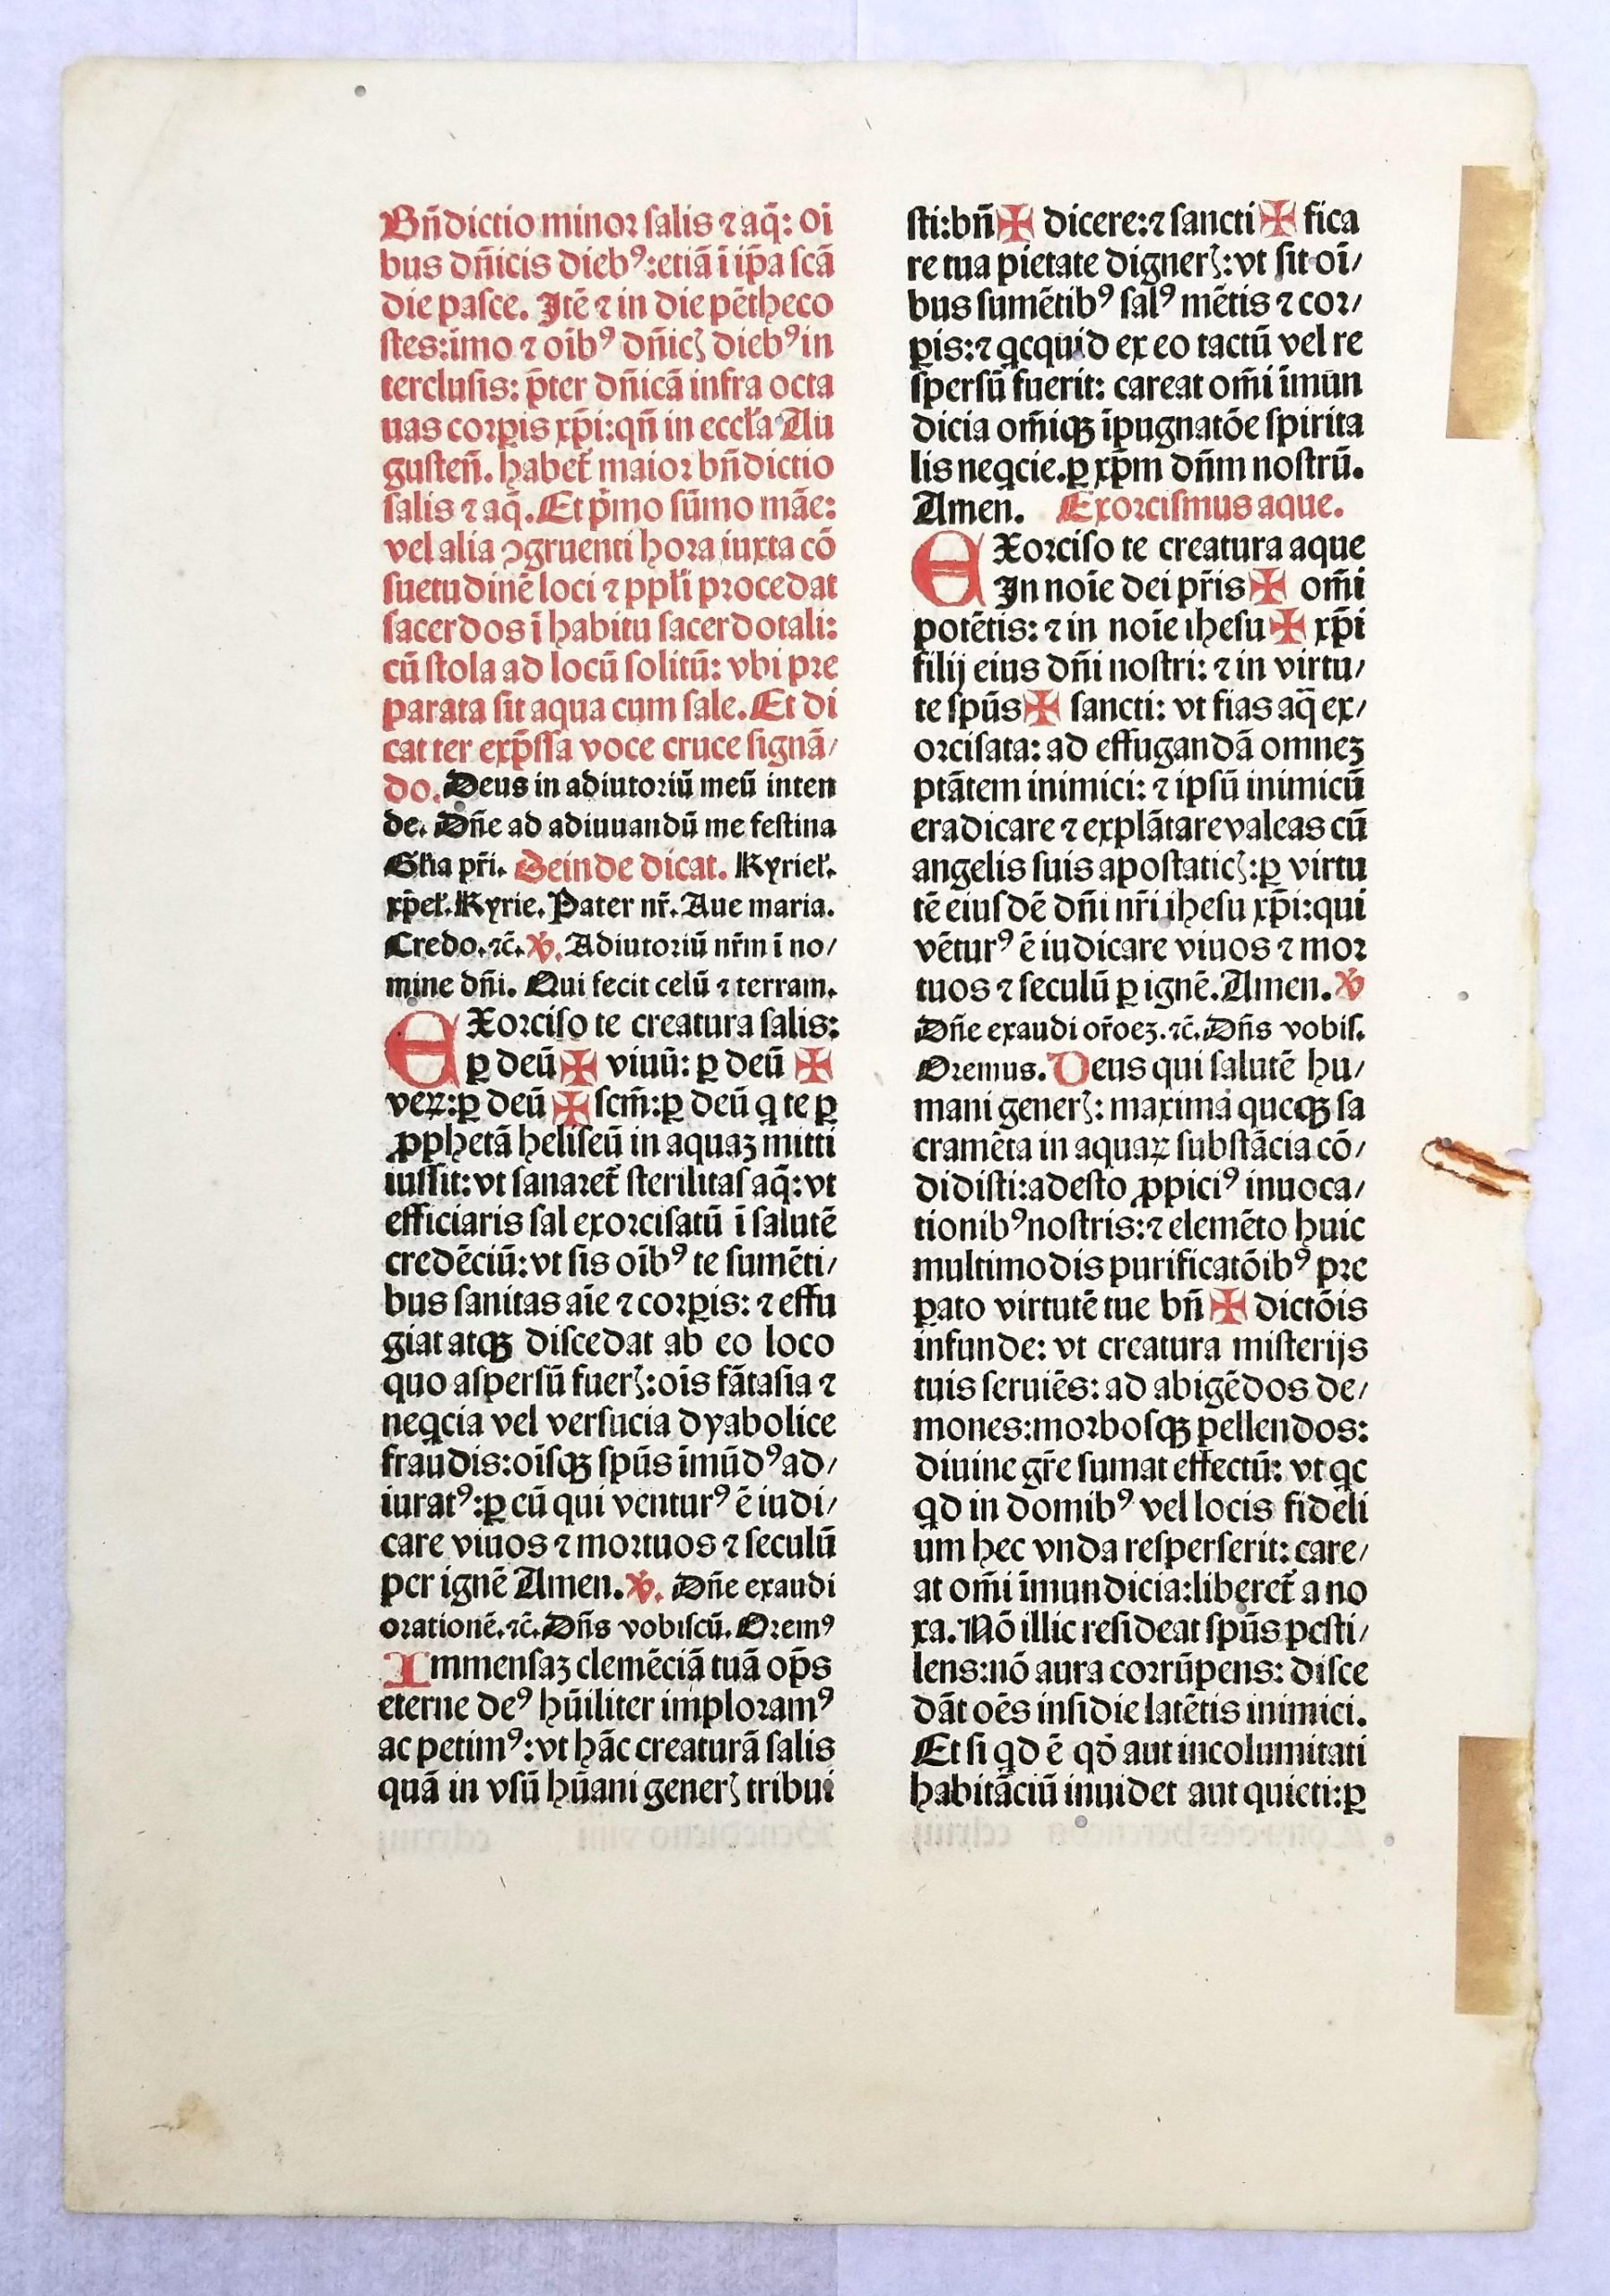 Bn̄dictio minor salis ⁊ aq̄: oī
bus dn̄icis diebꝰ: etiā ī ip̄a scā
die pasce. Itē ⁊ in die pētheco
stes: īmo ⁊ oībꝰ dn̄icꝭ diebꝰ in
terclusis: p̄ter dn̄icā infra octa
uas corꝑis xp̄i: qn̄ in eccl̄a Au
gusten̄. habet̄ maior bn̄dictio
salis ⁊ aq̄. Et p̄mo sūmo māe:
vel alia ꝯgruenti hora iuxta cō
suetudinē loci ⁊ ppl̄i procedat
sacerdos ī habitu sacerdotali:
cū stola ad locū solitū: vbi pre
parata sit aqua cum sale. Et di
cat ter exp̄ssa voce cruce signā/
do. Deus in adiutoriū meū inten
de. Dn̄e ad adiuuandū me festina
Gl̄ia pr̄i. Deinde dicat. Kyriel̄.
xp̄el̄. Kyrie. Pater nr̄. Aue maria.
Credo. ⁊c̄. ℣. Adiutoriū nr̄m ī no/
mine dn̄i. Qui fecit celū ⁊ terram.
EXorciso te creatura salis:
ꝑ deū ✠ viuū: ꝑ deū ✠
veꝝ: ꝑ deū ✠ scm̄: ꝑ deū q te ꝑ
ꝓphetā heliseū in aquaꝫ mitti
iussit: vt sanaret̄ sterilitas aq̄: vt
efficiaris sal exorcisatū ī salutē
credēciū: vt sis oībꝰ te sumēti/
bus sanitas aīe ⁊ corꝑis: ⁊ effu
giat atqꝫ discedat ab eo loco
quo aspersū fuerꝭ: oīs fātasia ⁊
neqcia vel versucia dyabolice
fraudis: oīsqꝫ spūs īmūdꝰ ad/
iuratꝰ: ꝑ eū qui venturꝰ ē iudi/
care viuos ⁊ mortuos ⁊ seculū
per ignē Amen. ℣. Dn̄e exaudi
orationē. ⁊c̄. Dn̄s vobiscū. Oremꝰ
Immensaꝫ clemēciā tuā op̄s
eterne deꝰ hūiliter imploramꝰ
ac petimꝰ: vt hāc creaturā salis
quā in vsū hūani generꝭ tribui
sti: bn̄ ✠ dicere: ⁊ sancti ✠ fica
re tua pietate dignerꝭ: vt sit oī/
bus sumētibꝰ salꝰ mētis ⁊ cor/
ꝑis: ⁊ qcquid ex eo tactū vel re
spersū fuerit: careat om̄i īmun
dicia om̄iqꝫ īpugnatōe spirita
lis neqcie. ꝑ xp̄m dn̄m nostrū.
Amen. Exorcismus aque.
EXorciso te creatura aque
In noīe dei pr̄is ✠ om̄i
potētis: ⁊ in noīe ihesu ✠ xp̄i
filij eius dn̄i nostri: ⁊ in virtu/
te spūs ✠ sancti: vt fias aq̄ ex/
orcisata: ad effugandā omneꝫ
ptātem inimici: ⁊ ipsū inimicū
eradicare ⁊ explātare valeas cū
angelis suis apostaticꝭ: ꝑ virtu
tē eiusdē dn̄i nr̄i ihesu xp̄i: qui
vēturꝰ ē iudicare viuos ⁊ mor
tuos ⁊ seculū ꝑ ignē. Amen. ℣
Dn̄e exaudi or̄oeꝫ. ⁊c̄. Dn̄s vobis.
Oremus. Deus qui salutē hu/
mani generꝭ: maxima queqꝫ sa
cramēta in aquaꝝ substācia cō/
didisti: adesto ꝓpiciꝰ inuoca/
tionibꝰ nostris: ⁊ elemēto huic
multimodis purificatōibꝰ pre
ꝑato virtutē tue bn̄ ✠ dictōis
infunde: vt creatura misterijs
tuis seruiēs: ad abigēdos de/
mones: morbosqꝫ pellendos:
diuine gr̄e sumat effectū: vt qc
qd in domibꝰ vel locis fideli
um hec vnda resperserit: care/
at om̄i īmundicia: liberet̄ a no
xa. Nō illic resideat spūs pesti/
lens: nō aura corrūpens: disce
dāt oēs insidie latētis inimici.
Et si qd ē qd̄ aut incolumitati
habitāciū inuidet aut quieti: ꝑ